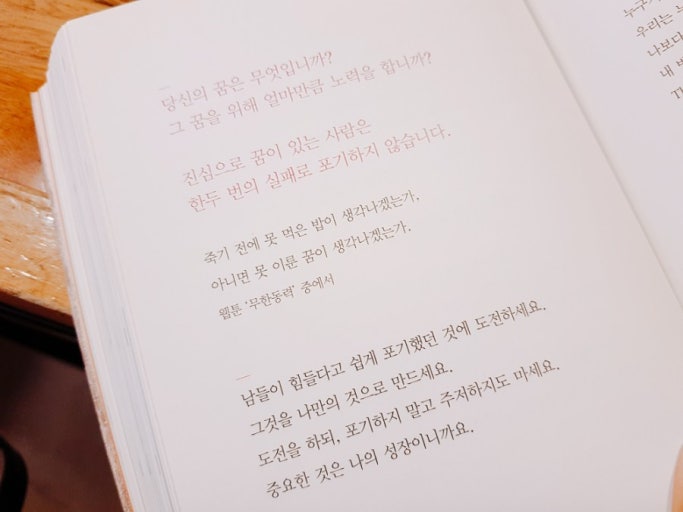 당신의 꿈은 무엇입니까?
그 꿈을 위해 얼마만큼 노력을 합니까?
진심으로 꿈이 있는 사람은
한두 번의 실패로 포기하지 않습니다.
죽기 전에 못 먹은 밥이 생각나겠는가,
아니면 못 이룬 꿈이 생각나겠는가.
웹툰 '무한동력' 중에서
남들이 힘들다고 쉽게 포기했던 것에 도전하세요.
그것을 나만의 것으로 만드세요.
도전을 하되, 포기하지 말고 주저하지도 마세요.
중요한 것은 나의 성장이니까요.
누구
우리는
나보다
내